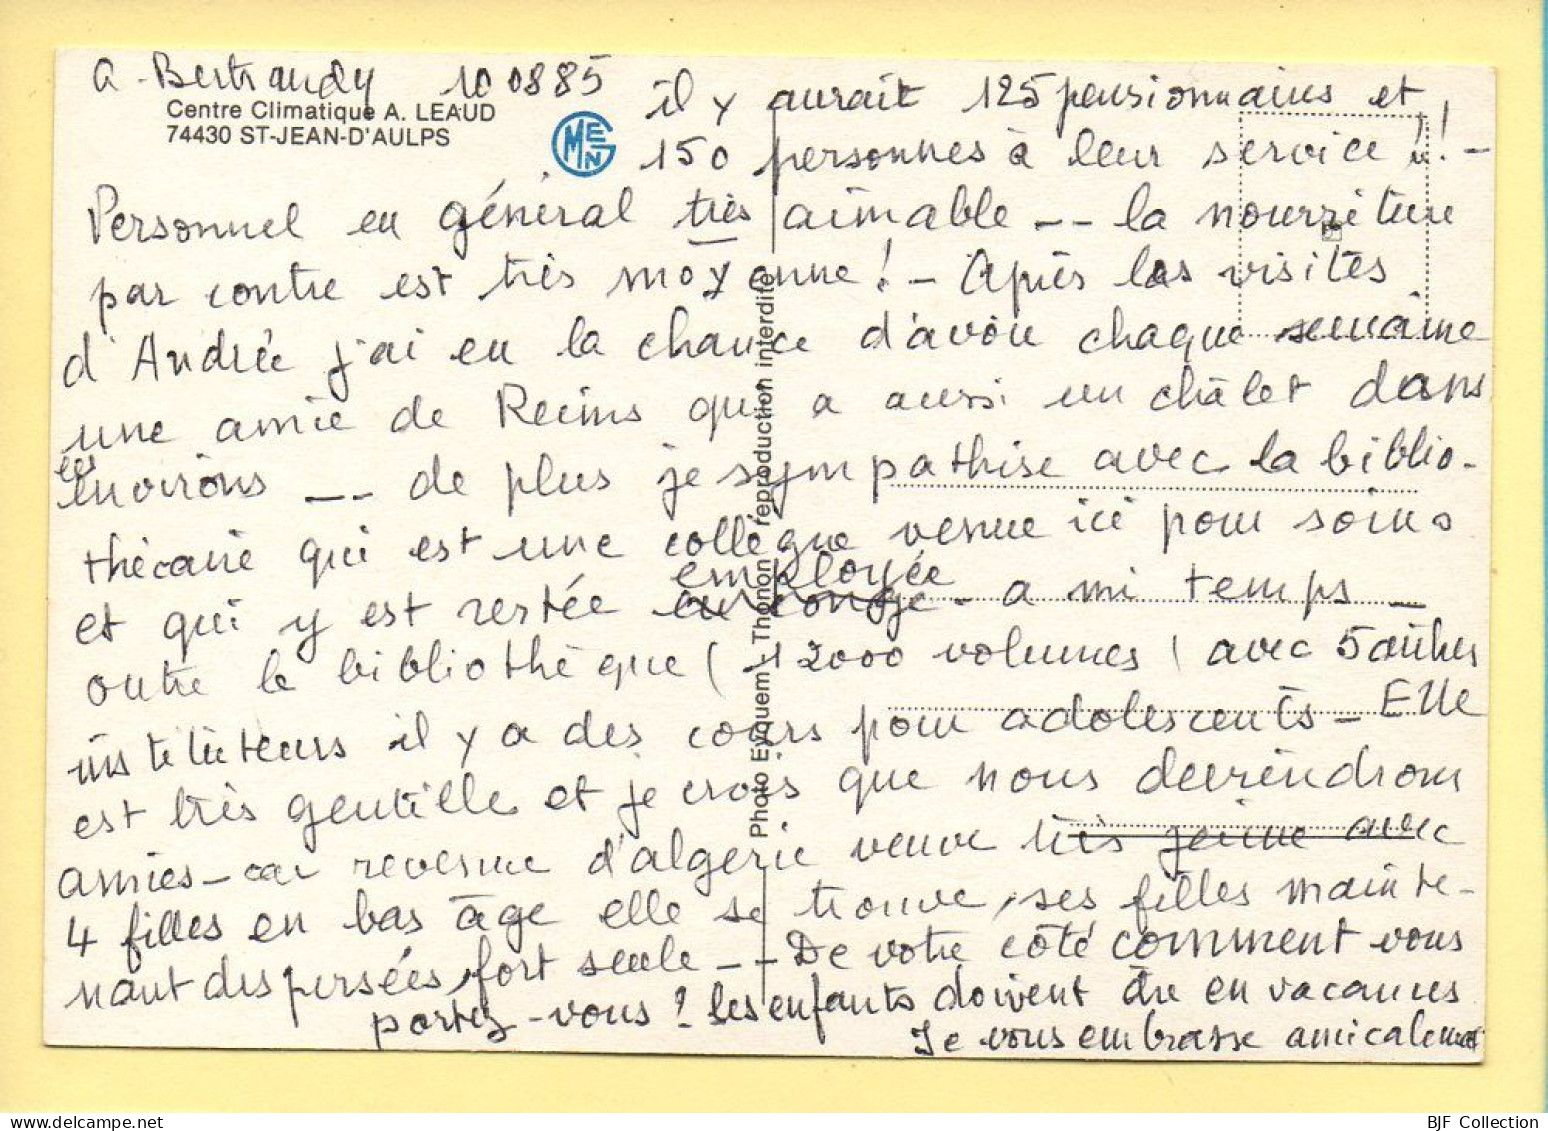 A. Bertrandy 10 08 85
Centre Climatique A. LEAUD
74430 ST-JEAN-D'AULPS
MGEN
il y aurait 125 pensionnaires et
150 personnes à leur service !! -
Personnel en général très aimable -- la nourriture
par contre est très moyenne ! - Après les visites
d'Andrée j'ai eu la chance d'avoir chaque semaine
une amie de Reims qui a aussi un châlet dans
les
environs -- de plus je sympathise avec la biblio-
thécaire qui est une collègue venue ici pour soins
employée
et qui y est restée en congé - a mi temps -
outre la bibliothèque ( 12000 volumes ) avec 5 autres
instituteurs il y a des cours pour adolescents - Elle
est très gentille et je crois que nous deviendrons
amies - car revenue d'algerie veuve très jeune avec
4 filles en bas âge elle se trouve, ses filles mainte-
nant dispersées, fort seule -- De votre côté comment vous
portez-vous ? les enfants doivent être en vacances
Je vous embrasse amicalement
Photo Eyquem - Thonon reproduction interdite
BJF Collection